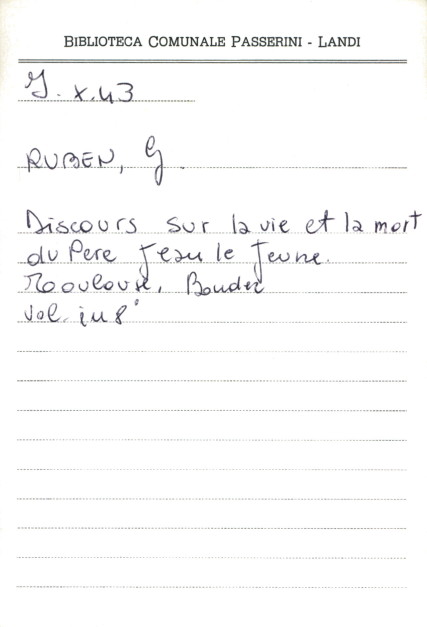 BIBLIOTECA COMUNALE PASSERINI - LANDI
J. x.43
RUBEN, G.
Discours sur la vie et la mort
du Pere Jean le Jeune.
Toulouse, Boudez
vol. in 8°